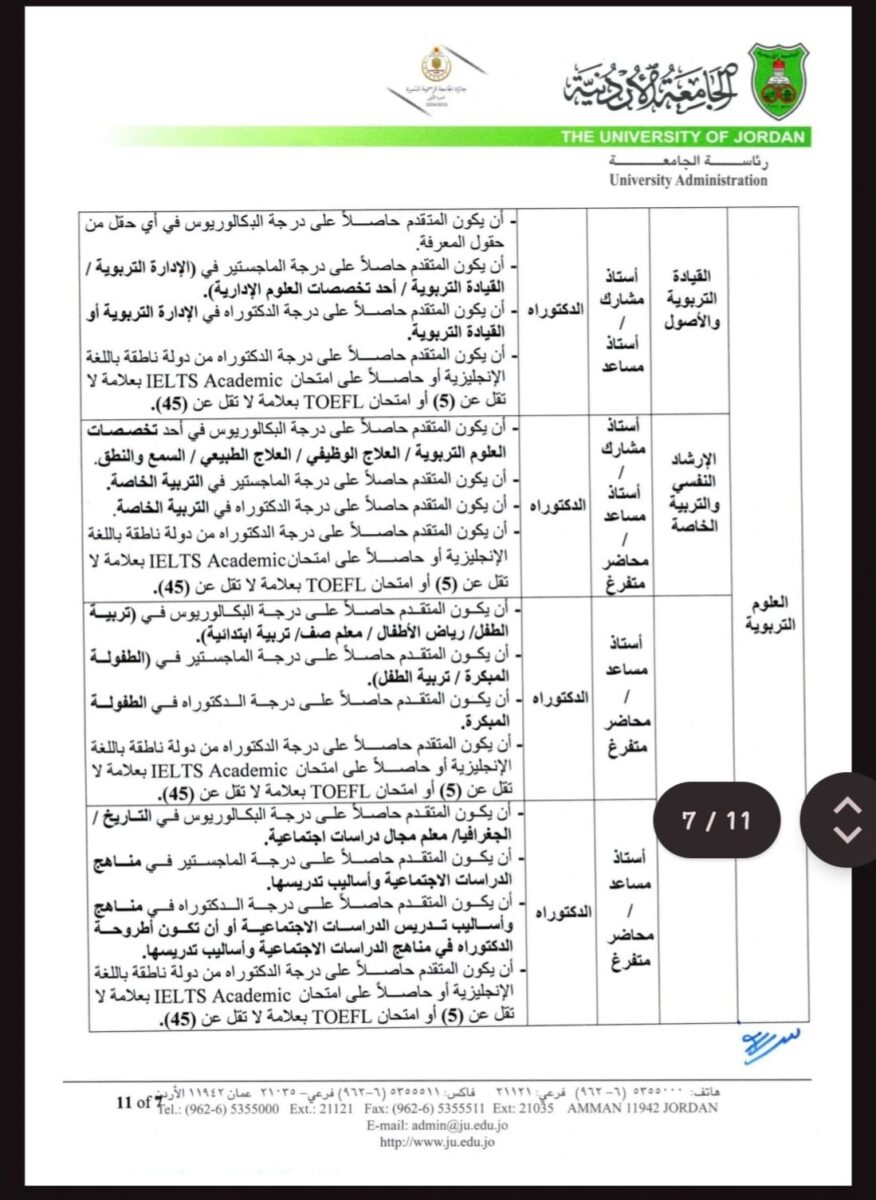 الجامعة الأردنية
THE UNIVERSITY OF JORDAN
رئاســـة الجامعـــة
University Administration
العلوم
التربوية
القيادة
التربوية
والأصول
أستاذ
مشارك
/
أستاذ
مساعد
الدكتوراه
- أن يكون المتقدم حاصلاً على درجة البكالوريوس في أي حقل من
حقول المعرفة.
- أن يكون المتقدم حاصلاً على درجة الماجستير في (الإدارة التربوية /
القيادة التربوية / أحد تخصصات العلوم الإدارية).
- أن يكون المتقدم حاصلاً على درجة الدكتوراه في الإدارة التربوية أو
القيادة التربوية.
- أن يكون المتقدم حاصلاً على درجة الدكتوراه من دولة ناطقة باللغة
الإنجليزية أو حاصلاً على امتحان IELTS Academic بعلامة لا
تقل عن (5) أو امتحان TOEFL بعلامة لا تقل عن (45).
الإرشاد
النفسي
والتربية
الخاصة
أستاذ
مشارك
/
أستاذ
مساعد
/
محاضر
متفرغ
الدكتوراه
- أن يكون المتقدم حاصلاً على درجة البكالوريوس في أحد تخصصات
العلوم التربوية / العلاج الوظيفي / العلاج الطبيعي / السمع والنطق.
- أن يكون المتقدم حاصلاً على درجة الماجستير في التربية الخاصة.
- أن يكون المتقدم حاصلاً على درجة الدكتوراه في التربية الخاصة.
- أن يكون المتقدم حاصلاً على درجة الدكتوراه من دولة ناطقة باللغة
الإنجليزية أو حاصلاً على امتحان IELTS Academic بعلامة لا
تقل عن (5) أو امتحان TOEFL بعلامة لا تقل عن (45).
أستاذ
مساعد
/
محاضر
متفرغ
الدكتوراه
- أن يكون المتقدم حاصلاً على درجة البكالوريوس في (تربية
الطفل/ رياض الأطفال / معلم صف/ تربية ابتدائية).
- أن يكون المتقدم حاصلاً على درجة الماجستير في (الطفولة
المبكرة / تربية الطفل).
- أن يكون المتقدم حاصلاً على درجة الدكتوراه في الطفولة
المبكرة.
- أن يكون المتقدم حاصلاً على درجة الدكتوراه من دولة ناطقة باللغة
الإنجليزية أو حاصلاً على امتحان IELTS Academic بعلامة لا
تقل عن (5) أو امتحان TOEFL بعلامة لا تقل عن (45).
7 / 11
أستاذ
مساعد
/
محاضر
متفرغ
الدكتوراه
- أن يكون المتقدم حاصلاً على درجة البكالوريوس في التاريخ /
الجغرافيا/ معلم مجال دراسات اجتماعية.
- أن يكون المتقدم حاصلاً على درجة الماجستير في مناهج
الدراسات الاجتماعية وأساليب تدريسها.
- أن يكون المتقدم حاصلاً على درجة الدكتوراه في مناهج
وأساليب تدريس الدراسات الاجتماعية أو أن تكون أطروحة
الدكتوراه في مناهج الدراسات الاجتماعية وأساليب تدريسها.
- أن يكون المتقدم حاصلاً على درجة الدكتوراه من دولة ناطقة باللغة
الإنجليزية أو حاصلاً على امتحان IELTS Academic بعلامة لا
تقل عن (5) أو امتحان TOEFL بعلامة لا تقل عن (45).
هاتف: ٥٣٥٥٠٠٠ (٦-٩٦٢) فرعي: ٢١١٢١ فاكس: ٥٣٥٥٥١١ (٦-٩٦٢) فرعي- ٢١٠٣٥ عمان ١١٩٤٢ الأردن
11 of 7
Tel.: (962-6) 5355000 Ext.: 21121 Fax: (962-6) 5355511 Ext: 21035 AMMAN 11942 JORDAN
E-mail: admin@ju.edu.jo
http://www.ju.edu.jo